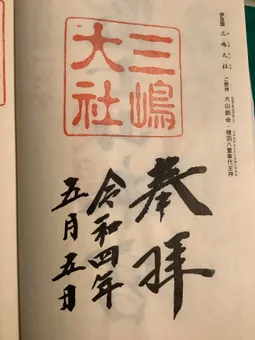 伊豆國 三嶋大社 ご祭神 大山祇命・積羽八重事代主神
三嶋
大社
奉拝
令和四年
五月五日